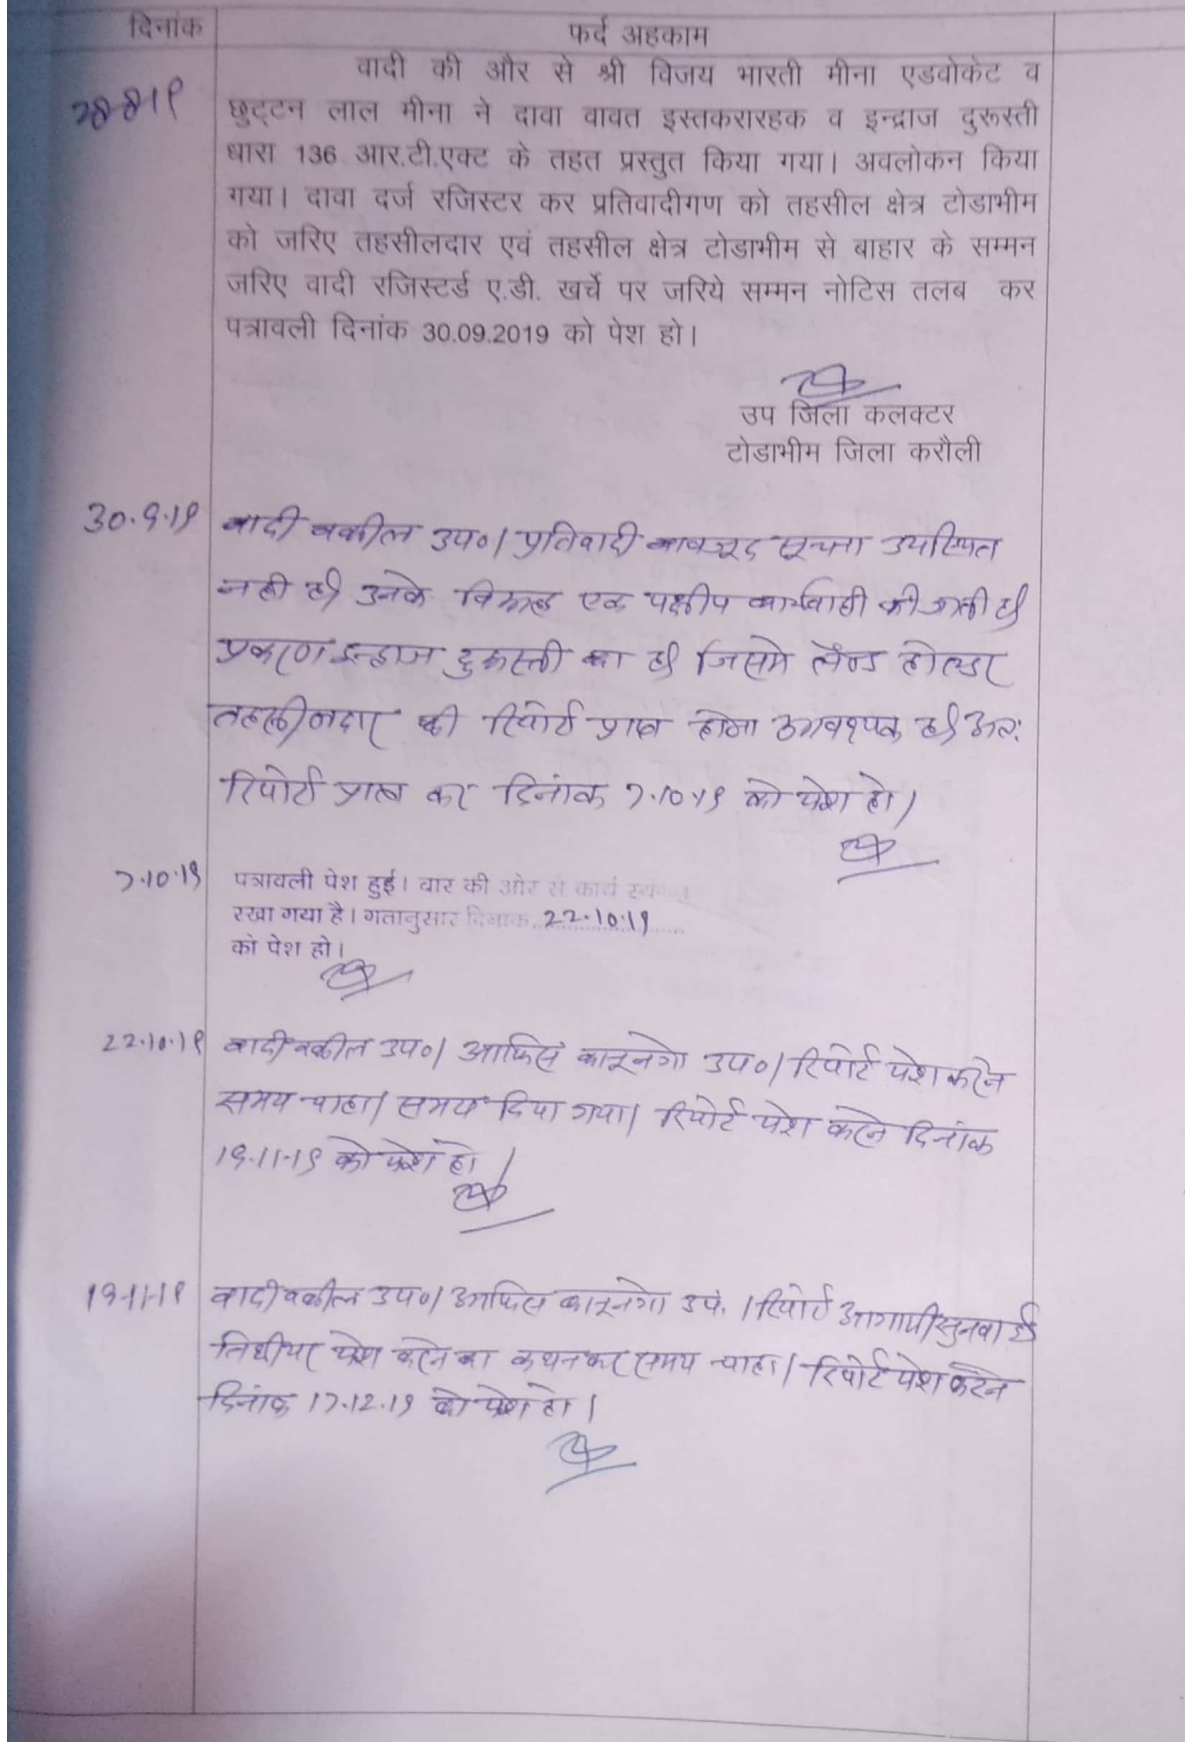 दिनांक
फर्द अहकाम
28-8-19
वादी की और से श्री विजय भारती मीना एडवोकेट व
छुट्टन लाल मीना ने दावा वावत इस्तकरारहक व इन्द्राज दुरूस्ती
धारा 136 आर.टी.एक्ट के तहत प्रस्तुत किया गया। अवलोकन किया
गया। दावा दर्ज रजिस्टर कर प्रतिवादीगण को तहसील क्षेत्र टोडाभीम
को जरिए तहसीलदार एवं तहसील क्षेत्र टोडाभीम से बाहार के सम्मन
जरिए वादी रजिस्टर्ड ए.डी. खर्चे पर जरिये सम्मन नोटिस तलब कर
पत्रावली दिनांक 30.09.2019 को पेश हो।
उप जिला कलक्टर
टोडाभीम जिला करौली
30.9.19 वादी वकील उप०। प्रतिवादी बावजूद सूचना उपस्थित
नही है। उनके विरूद्ध एक पक्षीय कार्यवाही की जाती है।
प्रकरण इन्द्राज दुरूस्ती का है। जिसमे लैण्ड होल्डर
तहसीलदार की रिपोर्ट प्राप्त होना आवश्यक है। अतः
रिपोर्ट प्राप्त कर दिनांक 7.10.19 को पेश हो।
7.10.19 पत्रावली पेश हुई। बार की ओर से कार्य स्थगन
रखा गया है। गतानुसार दिनांक 22.10.19
को पेश हो।
22.10.19 वादी वकील उप०। आफिस कानूनगो उप०। रिपोर्ट पेश करने
समय चाहा। समय दिया गया। रिपोर्ट पेश करने दिनांक
19-11-19 को पेश हो।
19-11-19 वादी वकील उप०। आफिस कानूनगो उप.। रिपोर्ट आगामी सुनवाई
तिथी पर पेश करने का कथन कर समय चाहा। रिपोर्ट पेश करने
दिनांक 17.12.19 को पेश हो।